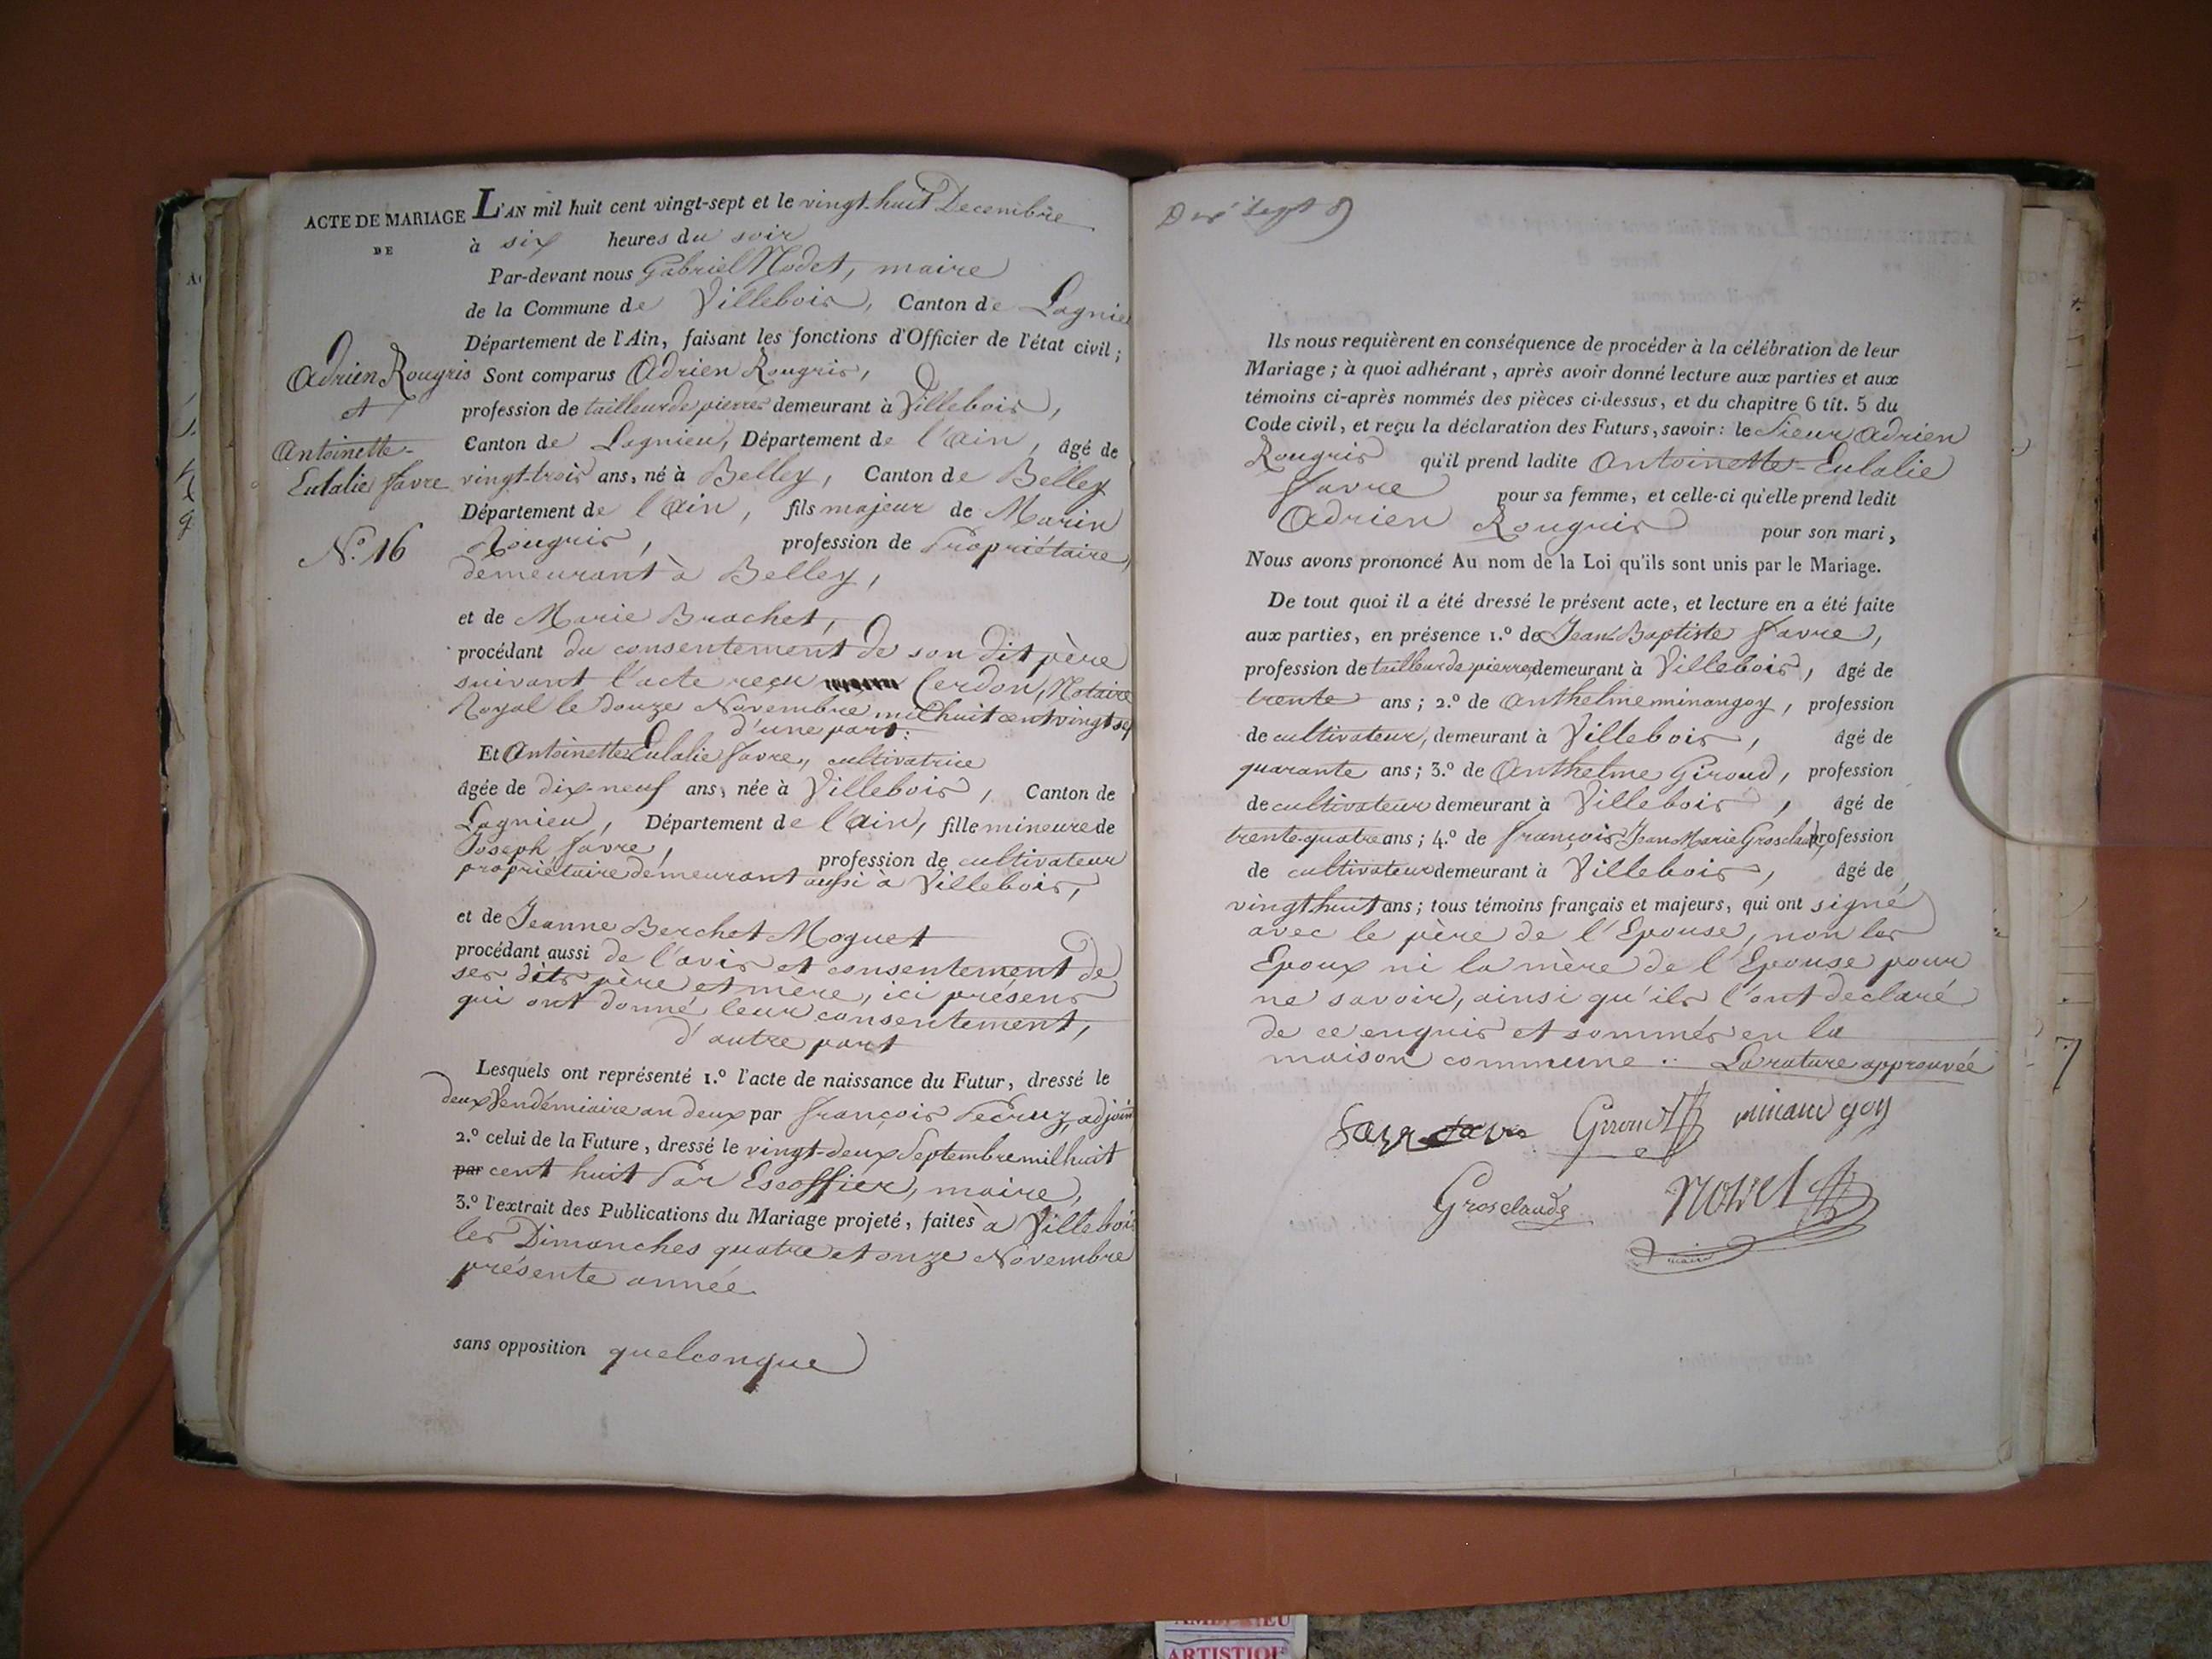 ACTE DE MARIAGE
DE
Adrien Rougris
et
Antoinette-
Eulalie favre
N.º 16
L'AN mil huit cent vingt-sept et le vingt-huit Decembre
à six heures du soir
Par-devant nous Gabriel Nodet, maire
de la Commune de Villebois, Canton de Lagnieu
Département de l'Ain, faisant les fonctions d'Officier de l'état civil;
Sont comparus Adrien Rougris,
profession de tailleur de pierres demeurant à Villebois,
Canton de Lagnieu, Département de l'Ain, âgé de
vingt-trois ans, né à Belley, Canton de Belley
Département de l'Ain, fils majeur de Marin
Rougris, profession de Propriétaire,
demeurant à Belley,
et de Marie Brachet,
procédant du consentement de son dit père
suivant l'acte reçu Cerdon, Notaire
Royal le douze Novembre mil huit cent vingt sept
d'une part:
Et Antoinette Eulalie favre, cultivatrice
âgée de dix-neuf ans, née à Villebois, Canton de
Lagnieu, Département de l'Ain, fille mineure de
Joseph favre, profession de cultivateur
propriétaire demeurant aussi à Villebois,
et de Jeanne Berchet Moguet
procédant aussi de l'avis et consentement de
ses dits père et mère, ici présens
qui ont donné leur consentement,
d'autre part
Lesquels ont représenté 1.º l'acte de naissance du Futur, dressé le
deux Vendémiaire an deux par françois Pecruz, adjoint
2.º celui de la Future, dressé le vingt-deux Septembre mil huit
par cent huit Par Escoffier, maire,
3.º l'extrait des Publications du Mariage projeté, faites à Villebois
les Dimanches quatre et onze Novembre
présente année
sans opposition quelconque
Ils nous requièrent en conséquence de procéder à la célébration de leur
Mariage; à quoi adhérant, après avoir donné lecture aux parties et aux
témoins ci-après nommés des pièces ci-dessus, et du chapitre 6 tit. 5 du
Code civil, et reçu la déclaration des Futurs, savoir: le Sieur Adrien
Rougris qu'il prend ladite Antoinette-Eulalie
favre pour sa femme, et celle-ci qu'elle prend ledit
Adrien Rougris pour son mari,
Nous avons prononcé Au nom de la Loi qu'ils sont unis par le Mariage.
De tout quoi il a été dressé le présent acte, et lecture en a été faite
aux parties, en présence 1.º de Jean Baptiste favre,
profession de tailleur de pierres demeurant à Villebois, âgé de
trente ans; 2.º de Anthelme minangoy, profession
de cultivateur, demeurant à Villebois, âgé de
quarante ans; 3.º de Anthelme Giroud, profession
de cultivateur demeurant à Villebois, âgé de
trente-quatre ans; 4.º de françois Jean Marie Grosclaude, profession
de cultivateur demeurant à Villebois, âgé de
vingt huit ans; tous témoins français et majeurs, qui ont signé
avec le père de l'Epouse, non les
Epoux ni la mère de l'Epouse pour
ne savoir, ainsi qu'ils l'ont declaré
de ce enquis et sommés en la
maison commune. La rature approuvée
Giroud minangoy
Grosclaude Nodet
maire
7
ARTISTIQUE